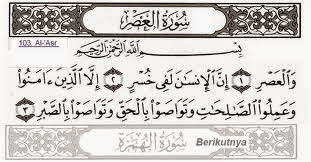 سُورَةُ العَصْرِ
103. Al-'Asr
بِسْمِ اللَّهِ الرَّحْمَٰنِ الرَّحِيمِ
وَالْعَصْرِ ١ إِنَّ الْإِنسَانَ لَفِي خُسْرٍ ٢ إِلَّا الَّذِينَ آمَنُوا
وَعَمِلُوا الصَّالِحَاتِ وَتَوَاصَوْا بِالْحَقِّ وَتَوَاصَوْا بِالصَّبْرِ ٣
سُورَةُ الهُمَزَةِ Berikutnya